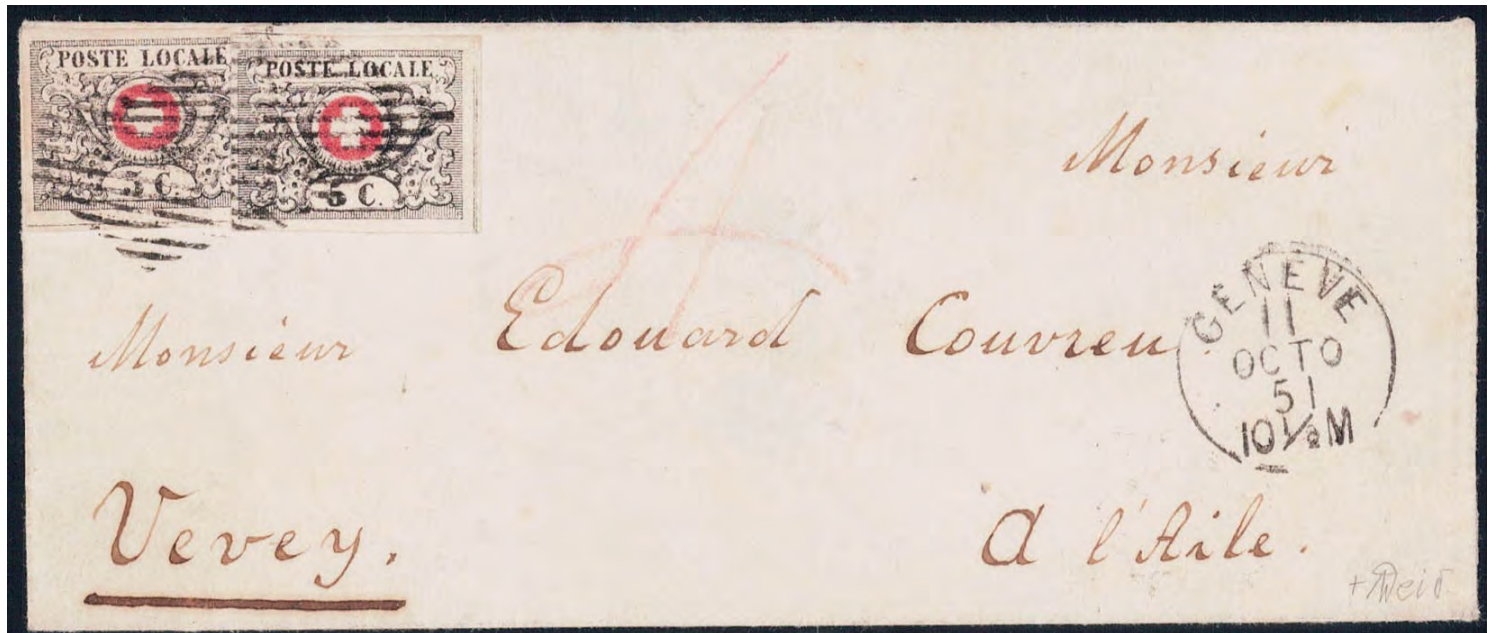 POSTE LOCALE
5 C.
POSTE LOCALE
5 C.
Monsieur
Monsieur Edouard Couvreu.
GENEVE
11
OCTO
51
10½M
Vevey.
A l'Aile.